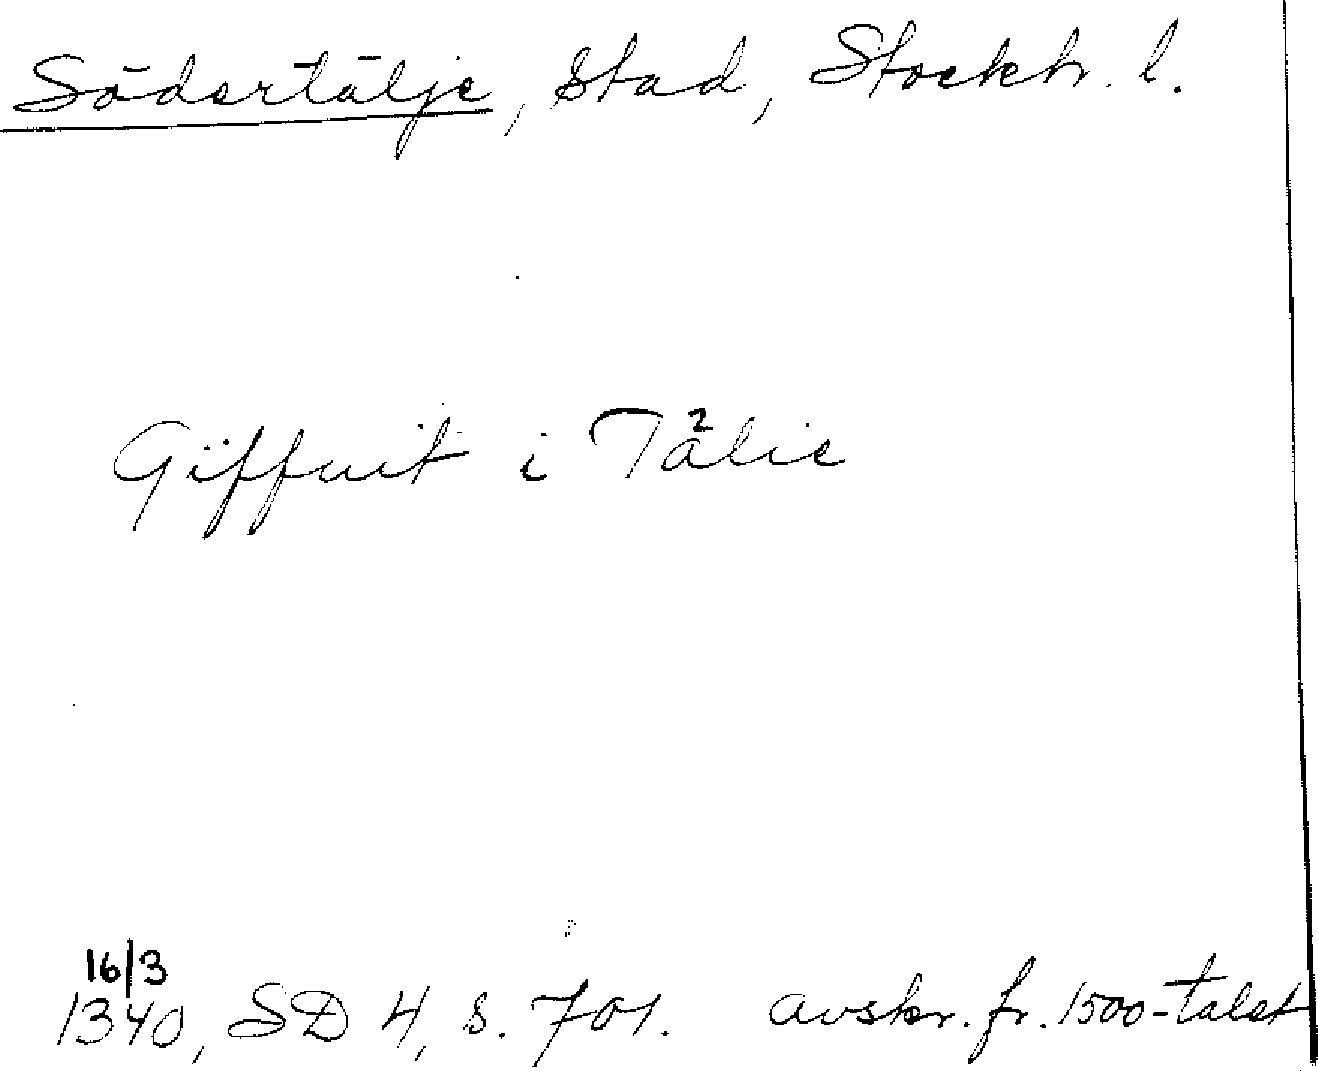 Södertälje, stad, Stockh. l.
Giffuit i Tälie
16/3
1340, SD 4, s. 701. avskr. fr. 1500-talet